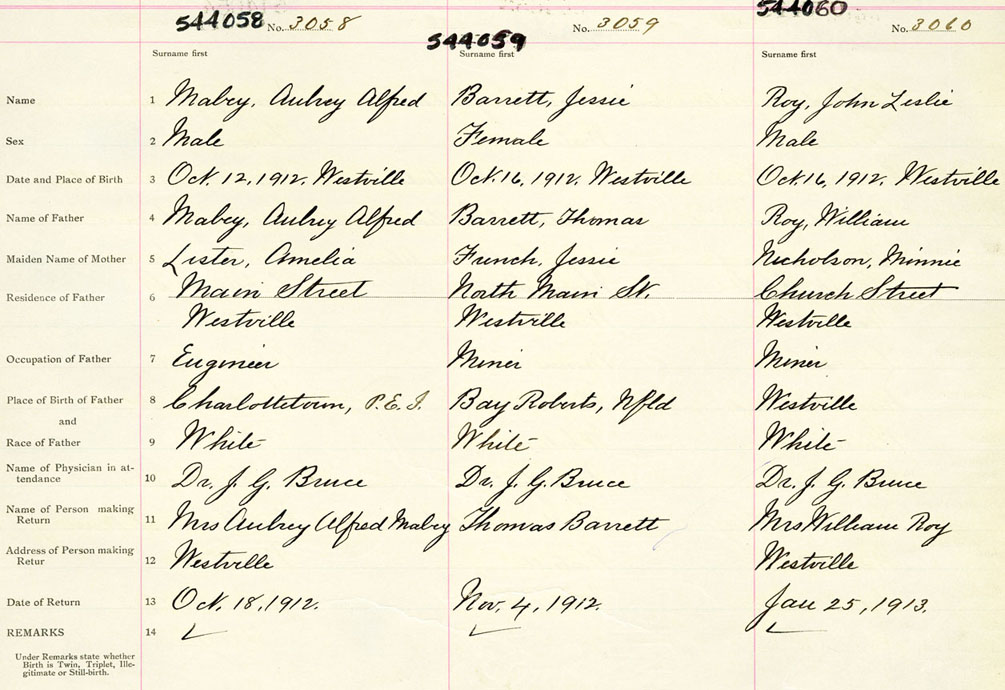 544058 No. 3058 544059 No. 3059 544060 No. 3060
Surname first Surname first Surname first
Name 1 Mabey, Aubrey Alfred Barrett, Jessie Roy, John Leslie
Sex 2 Male Female Male
Date and Place of Birth 3 Oct. 12, 1912. Westville Oct. 16, 1912. Westville Oct. 16, 1912. Westville
Name of Father 4 Mabey, Aubrey Alfred Barrett, Thomas Roy, William
Maiden Name of Mother 5 Lister, Amelia French, Jessie Nicholson, Minnie
Residence of Father 6 Main Street North Main St. Church Street
Westville Westville Westville
Occupation of Father 7 Engineer Miner Miner
Place of Birth of Father 8 Charlottetown, P.E.I. Bay Roberts, Nfld Westville
and
Race of Father 9 White White White
Name of Physician in at-
tendance 10 Dr. J. G. Bruce Dr. J. G. Bruce Dr. J. G. Bruce
Name of Person making
Return 11 Mrs Aubrey Alfred Mabey Thomas Barrett Mrs William Roy
Address of Person making
Retur 12 Westville Westville
Date of Return 13 Oct. 18, 1912. Nov. 4, 1912. Jan 25, 1913.
REMARKS 14
Under Remarks state whether
Birth is Twin, Triplet, Ille-
gitimate or Still-birth.